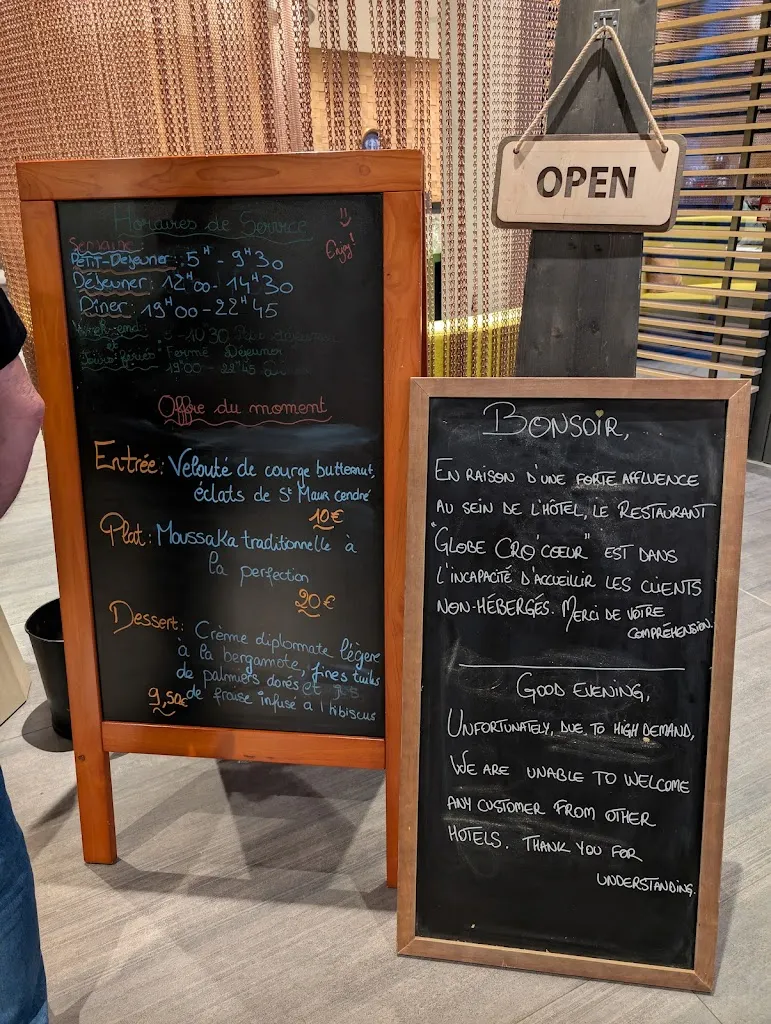 Horaires de Service
Enjoy!
Semaine:
Petit-Déjeuner: 5H - 9H30
Déjeuner: 12H00 - 14H30
Dîner: 19H00 - 22H45
Week-end: - 10H30
et
Jours fériés: Fermé Déjeuner
19H00 - 22H45
Offre du moment
Entrée: Velouté de courge butternut,
éclats de St Maur cendré
10€
Plat: Moussaka traditionnelle à
la perfection
20€
Dessert: Crème diplomate légère
à la bergamote, fines tuiles
de palmiers dorés et jus
9,50€ de fraise infusé a l'hibiscus
OPEN
BONSOIR,
EN RAISON D'UNE FORTE AFFLUENCE
AU SEIN DE L'HÔTEL, LE RESTAURANT
"GLOBE CRO'COEUR" EST DANS
L'INCAPACITÉ D'ACCUEILLIR LES CLIENTS
NON-HÉBERGÉS. MERCI DE VOTRE
COMPRÉHENSION.
GOOD EVENING,
UNFORTUNATELY, DUE TO HIGH DEMAND,
WE ARE UNABLE TO WELCOME
ANY CUSTOMER FROM OTHER
HOTELS. THANK YOU FOR
UNDERSTANDING.